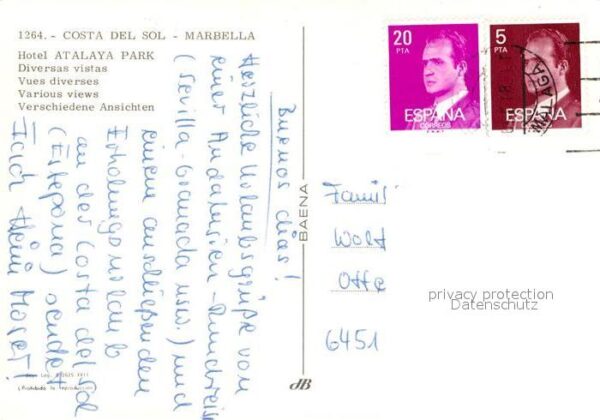 1264. - COSTA DEL SOL - MARBELLA
Hotel ATALAYA PARK
Diversas vistas
Vues diverses
Various views
Verschiedene Ansichten
Buenos dias!
Herzliche Urlaubsgrüße von
einer Andalusien-Rundreise
(Sevilla-Granada usw.) und
einem anschließenden
Erholungsurlaub
an der Costa del Sol
(Estepona) sendet
Heini
BAENA
20
PTA
ESPAÑA
CORREOS
5
PTA
ESPAÑA
MALAGA
Famil
Wolf
Otto
6451
privacy protection
Datenschutz
(Prohibida la reproducción)
dB